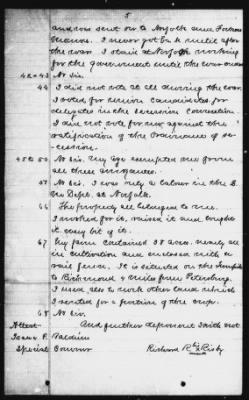 5
and was sent on to Norfolk and Fortress
Monroe. I never got back until after
the war. I staid at Norfolk working
for the government until the war ended
42 & 43 No Sir.
44 I did not vote at all during the war.
I voted for union candidates for
delegates in the secession Convention
I did not vote for nor against the
ratification of the Ordinance of se-
cession.
45 to 50 No Sir. My age exempted me from
all these
No Sir. I was only a laborer in the
Dept. at Norfolk.
66 The property all belonged to me.
I worked for it, raised it and bought
it every bit of it.
67 My farm contained 38 acres nearly all
in cultivation and enclosed with a
rail fence. It is situated on the
to Richmond 4 miles from Petersburg.
I used also to work other land which
I rented for a portion of the crop.
68 No Sir.
Attest And further deponent saith not
Isaac P. Baldwin
Special Commr Richard R his x mark Risby